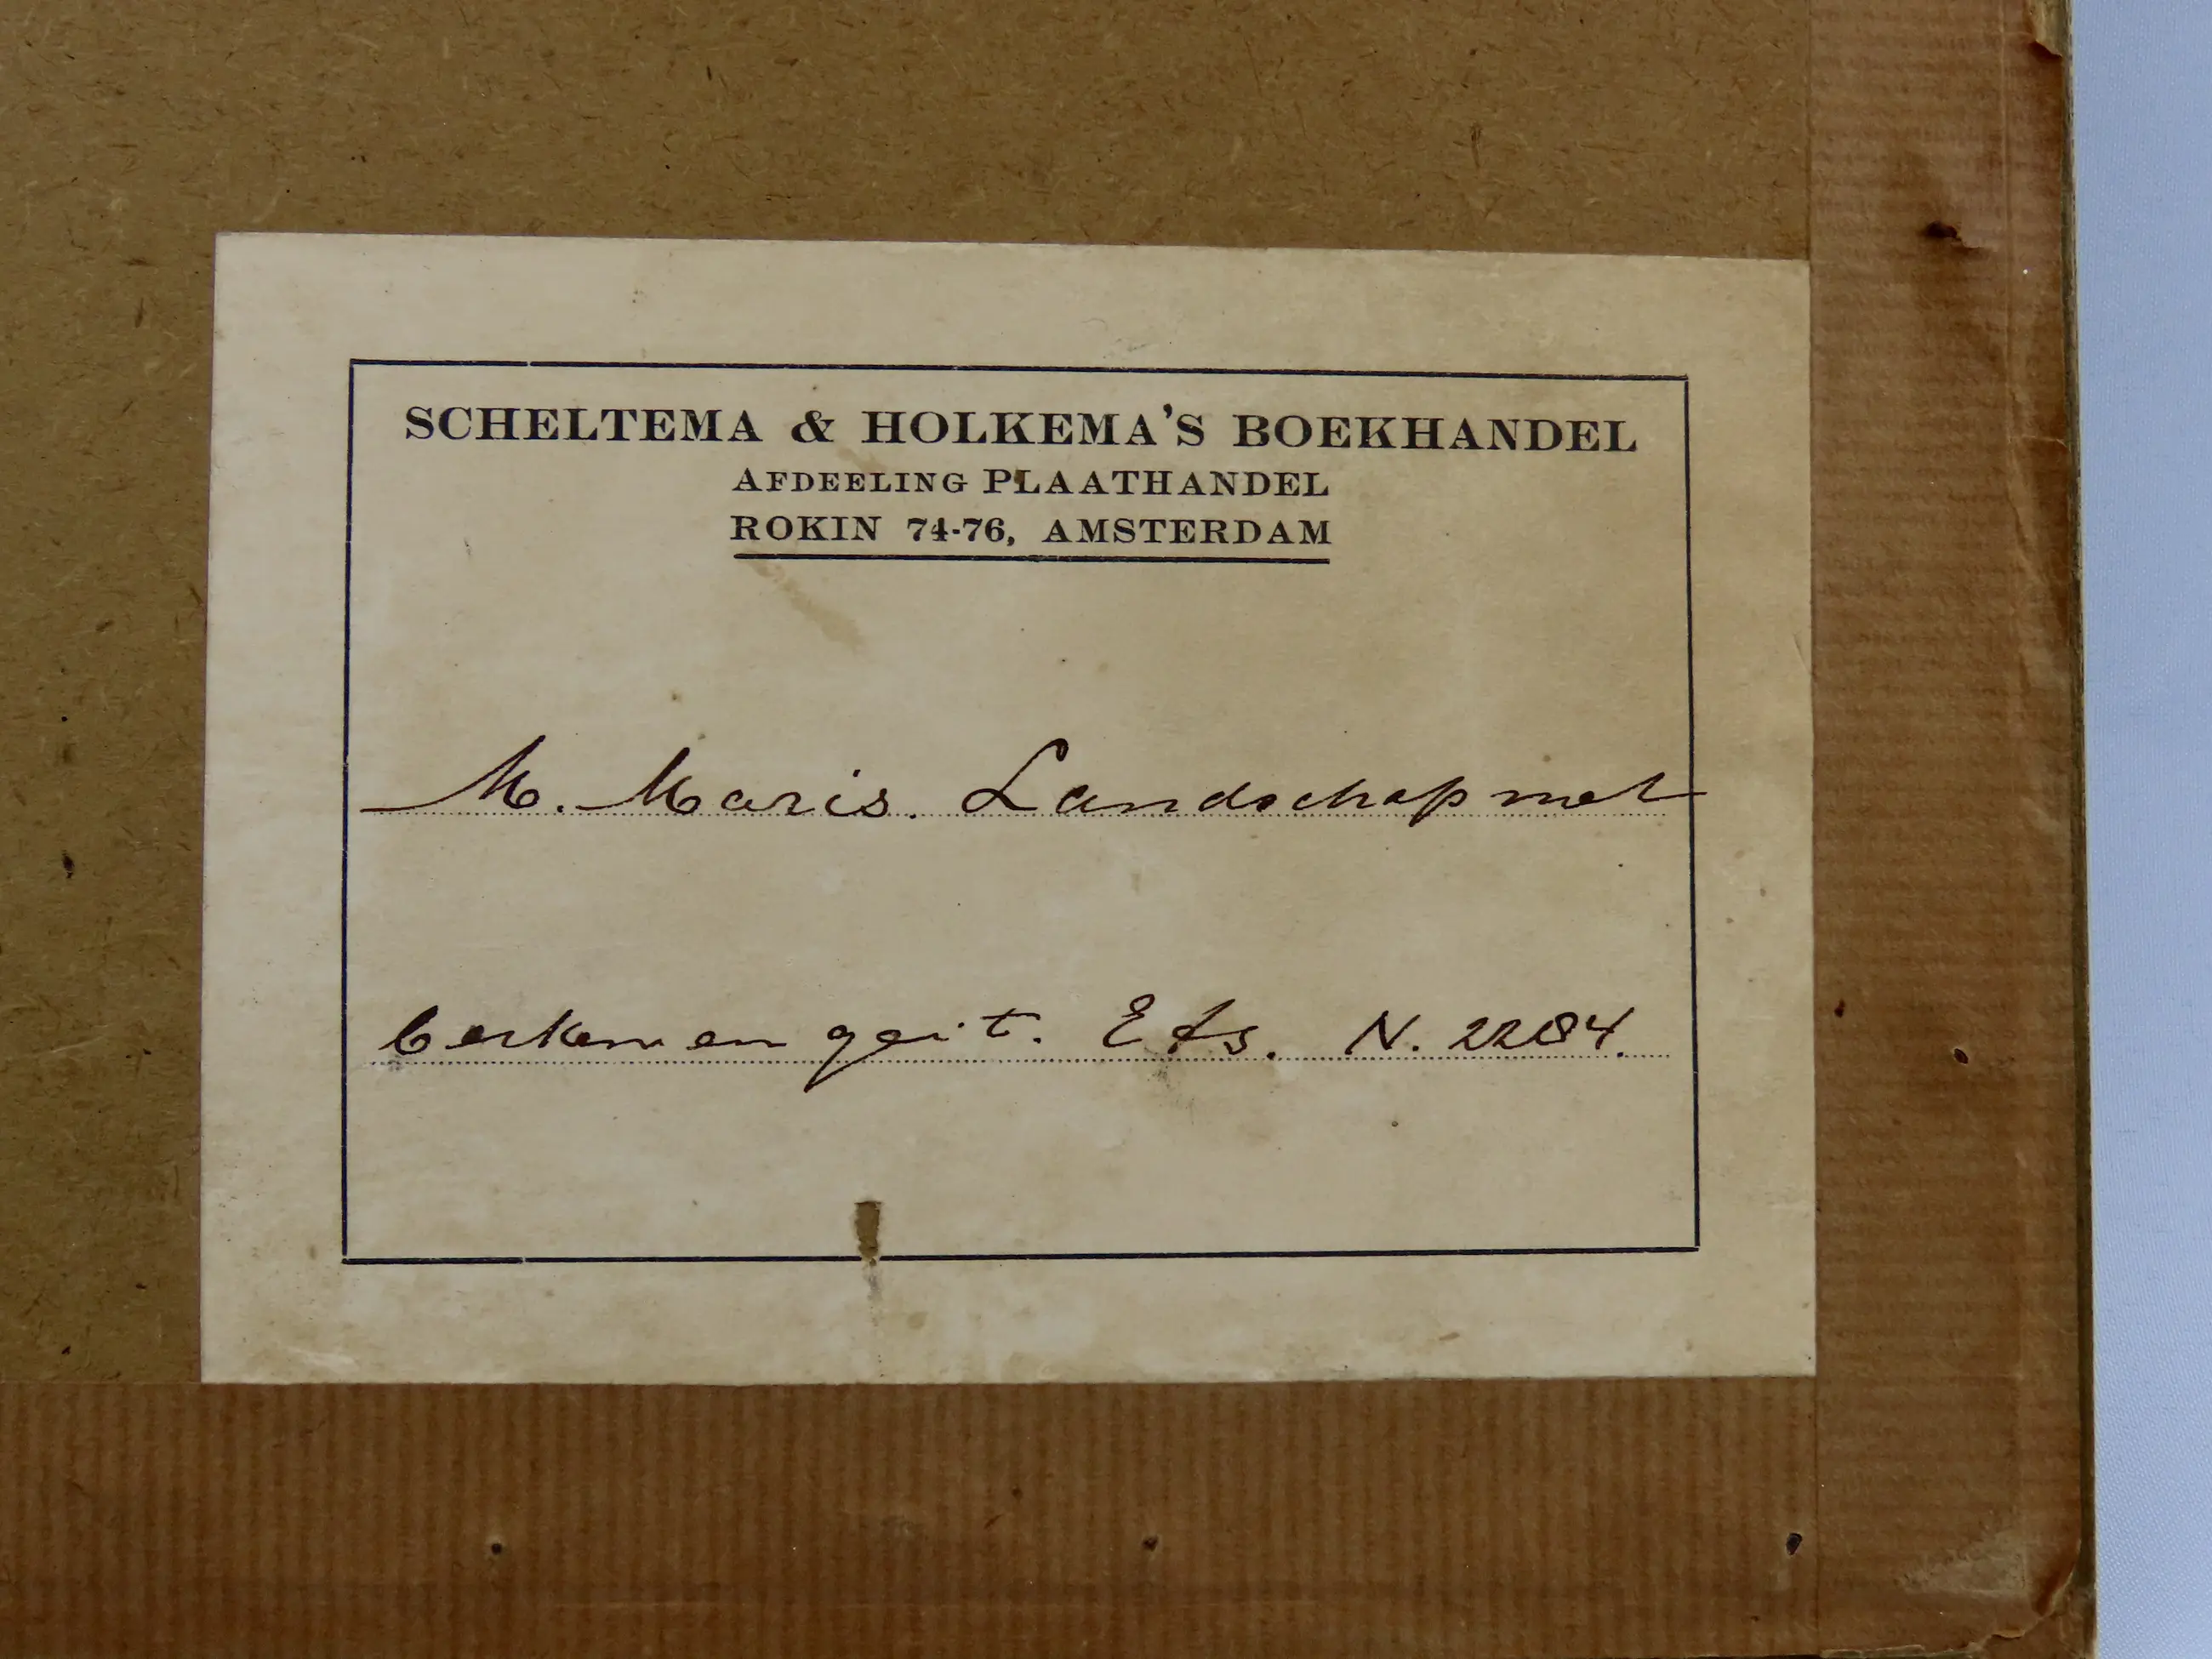 SCHELTEMA & HOLKEMA'S BOEKHANDEL
AFDEELING PLAATHANDEL
ROKIN 74-76, AMSTERDAM
M. Maris. Landschap met
berken en geit. Ets. N. 2284.